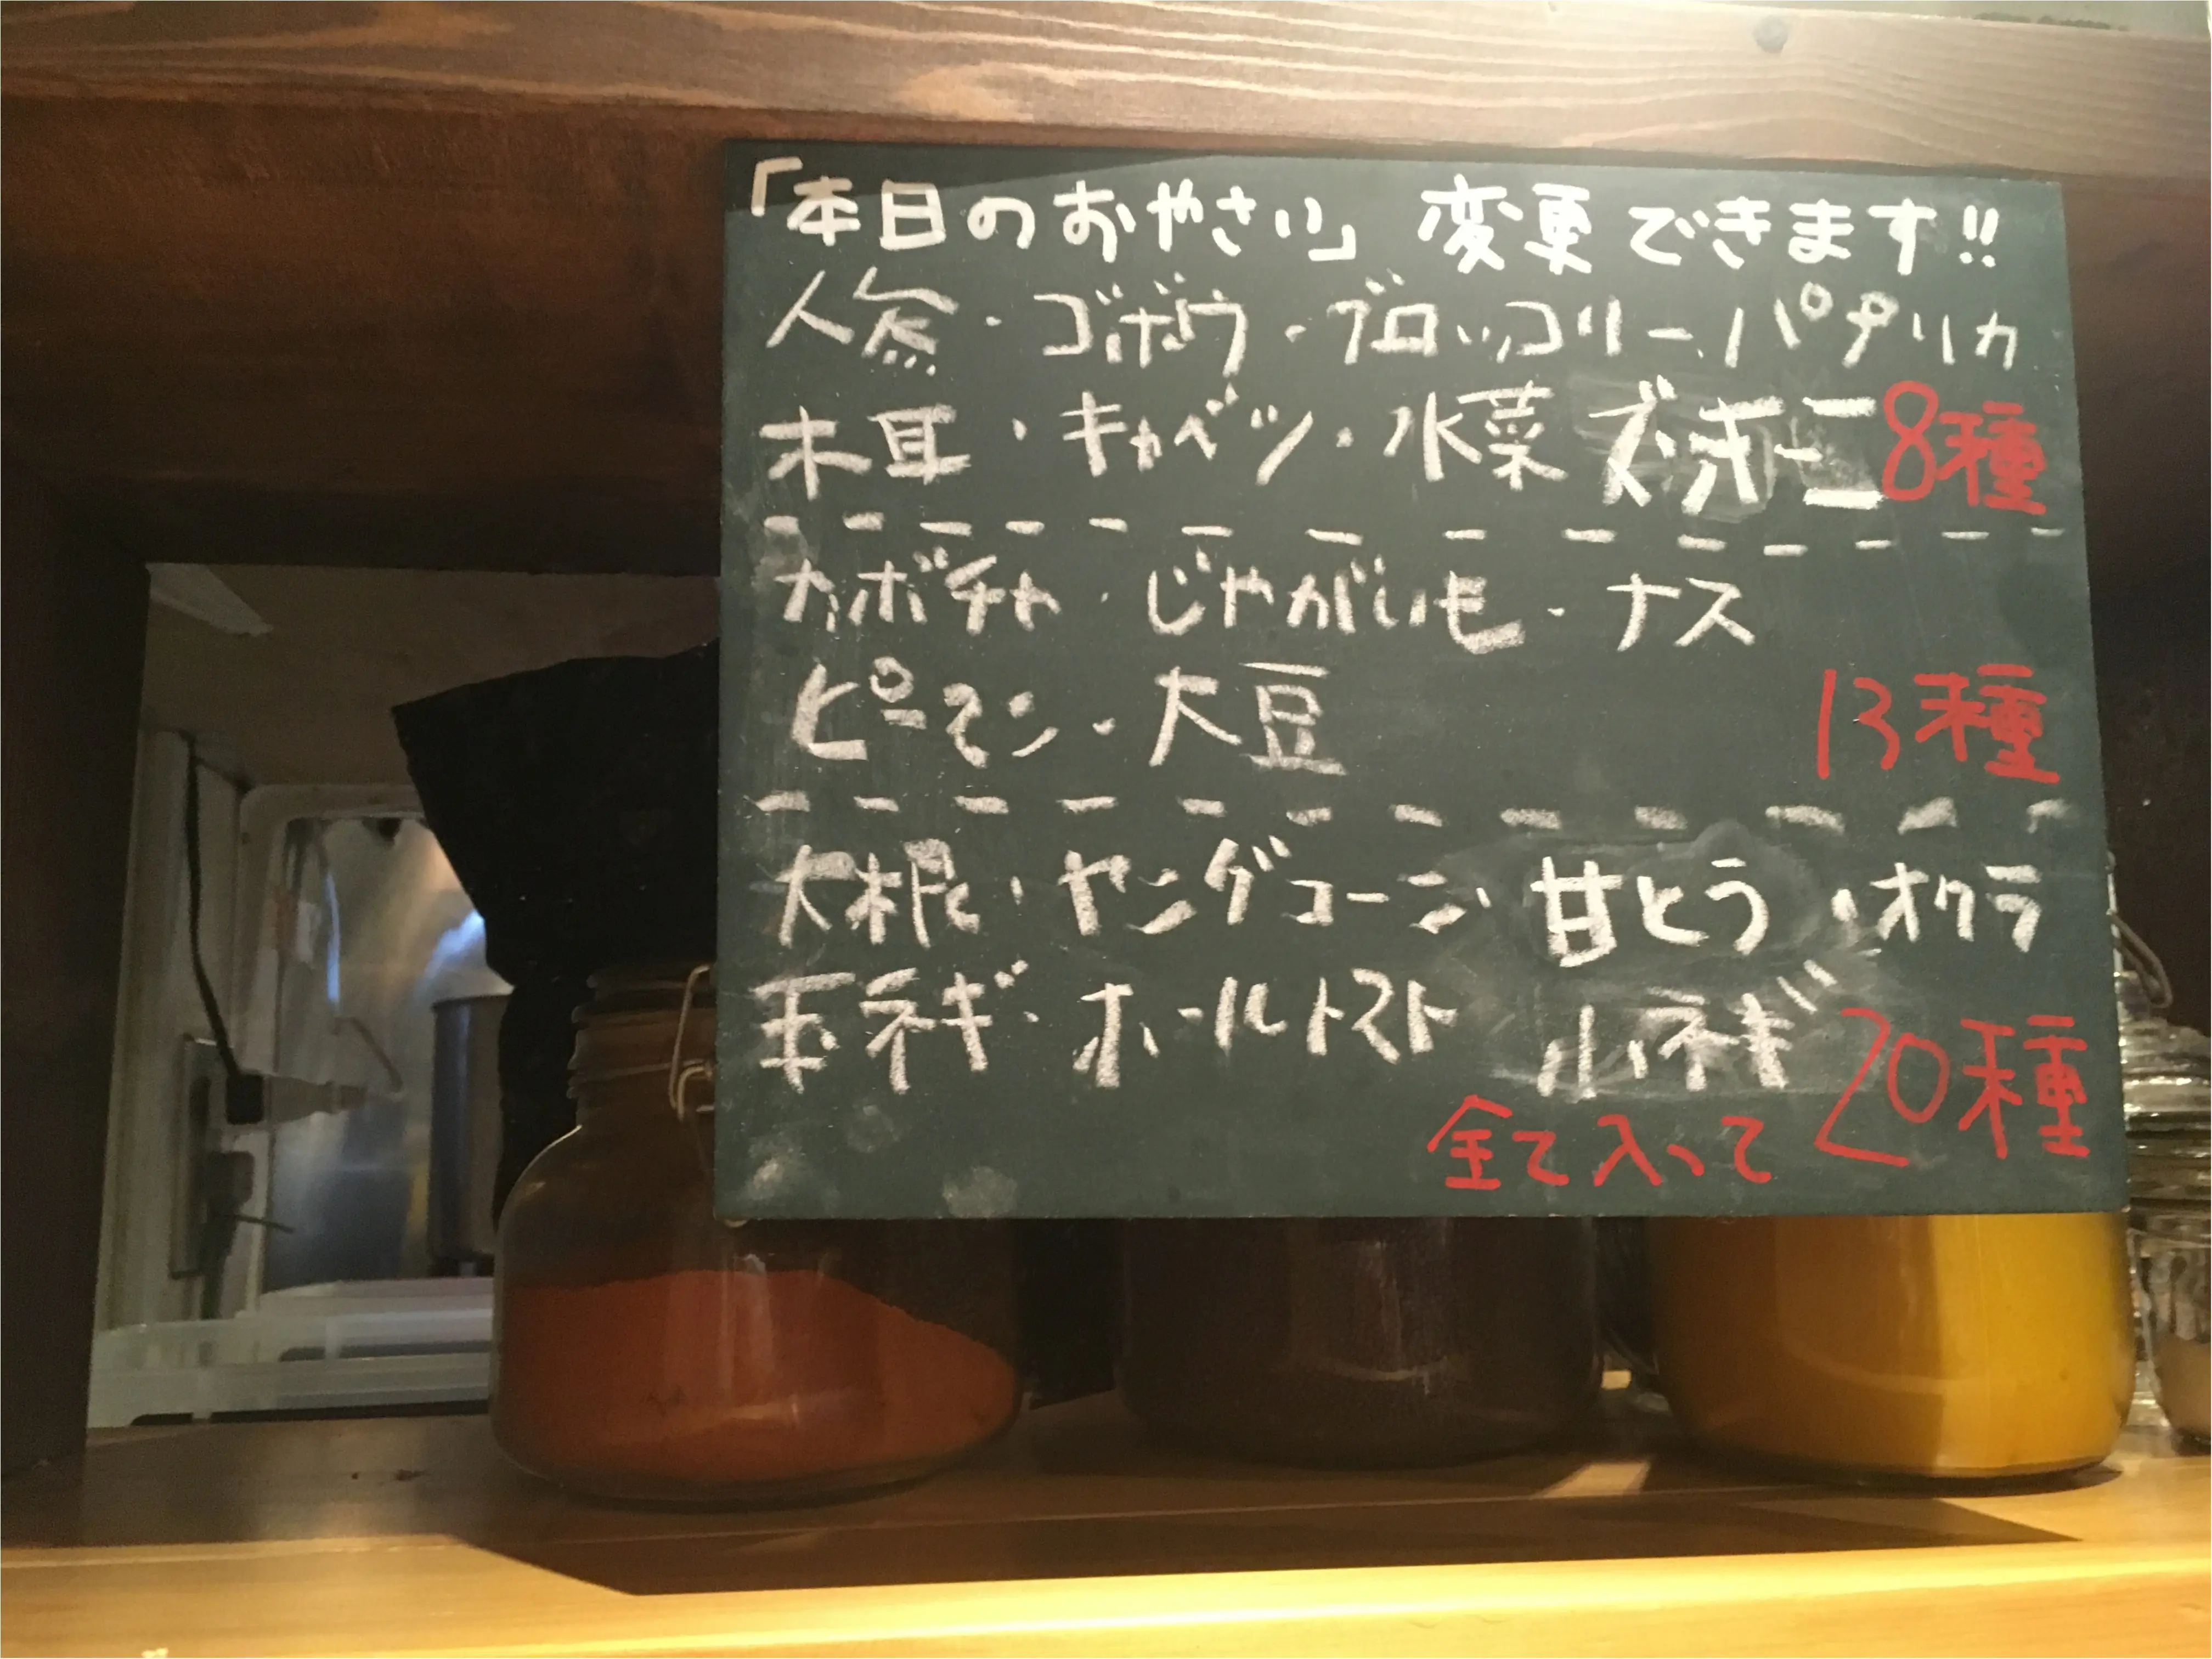 「本日のおやさい」変更できます!!
人参・ゴボウ・ブロッコリー・パプリカ
木耳・キャベツ・水菜 ズッキーニ 8種
カボチャ・じゃがいも・ナス
ピーマン・大豆 13種
大根・ヤングコーン 甘とう・オクラ
玉ネギ・ホールトマト 小ネギ
全て入って 20種